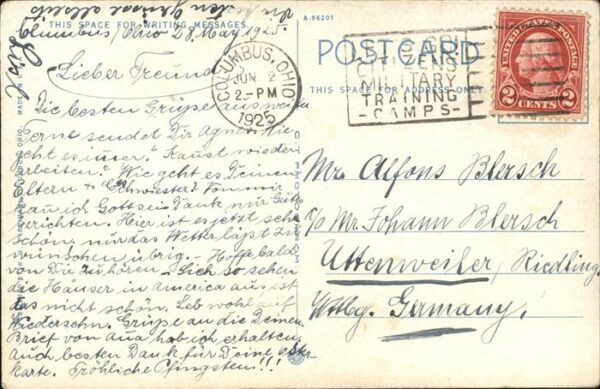 die
besten Grüsse allseits
Lisl
THIS SPACE FOR WRITING MESSAGES
A-96201
Columbus/Ohio 28 May 1925.
Lieber Freund
Die besten Grüsse aus weiter
Ferne sendet Dir Agnes. Wie
geht es immer. Kanst wieder
arbeiten. Wie geht es Deinen
Eltern + Schwiester? Von mir
kan ich Gott sei Dank nur Gute
berichten. Hier ist es jetzt sehr
schön, nur das Wetter läszt zu
wünschen übrig. - Hoffe bald
von Dir zu hören. - Sich so sehen
die Häuser in America aus ist
das nicht schön. Leb wohl auf
Wiedersehn. Grüsse an die Deinen
Brief von hab ich erhalten.
Auch besten Dank für Deine
karte. Fröhliche Pfingsten!!!
MADE IN
COLUMBUS, OHIO
JUN 2
2-PM
1925
CITIZENS
MILITARY
TRAINING
-CAMPS-
POSTCARD
THIS SPACE FOR ADDRESS ONLY
UNITED STATES POSTAGE
2 CENTS 2
Mr. Alfons Blersch
c/o Mr. Johann Blersch
Uttenweiler, Riedling.
Wttbg. Germany.